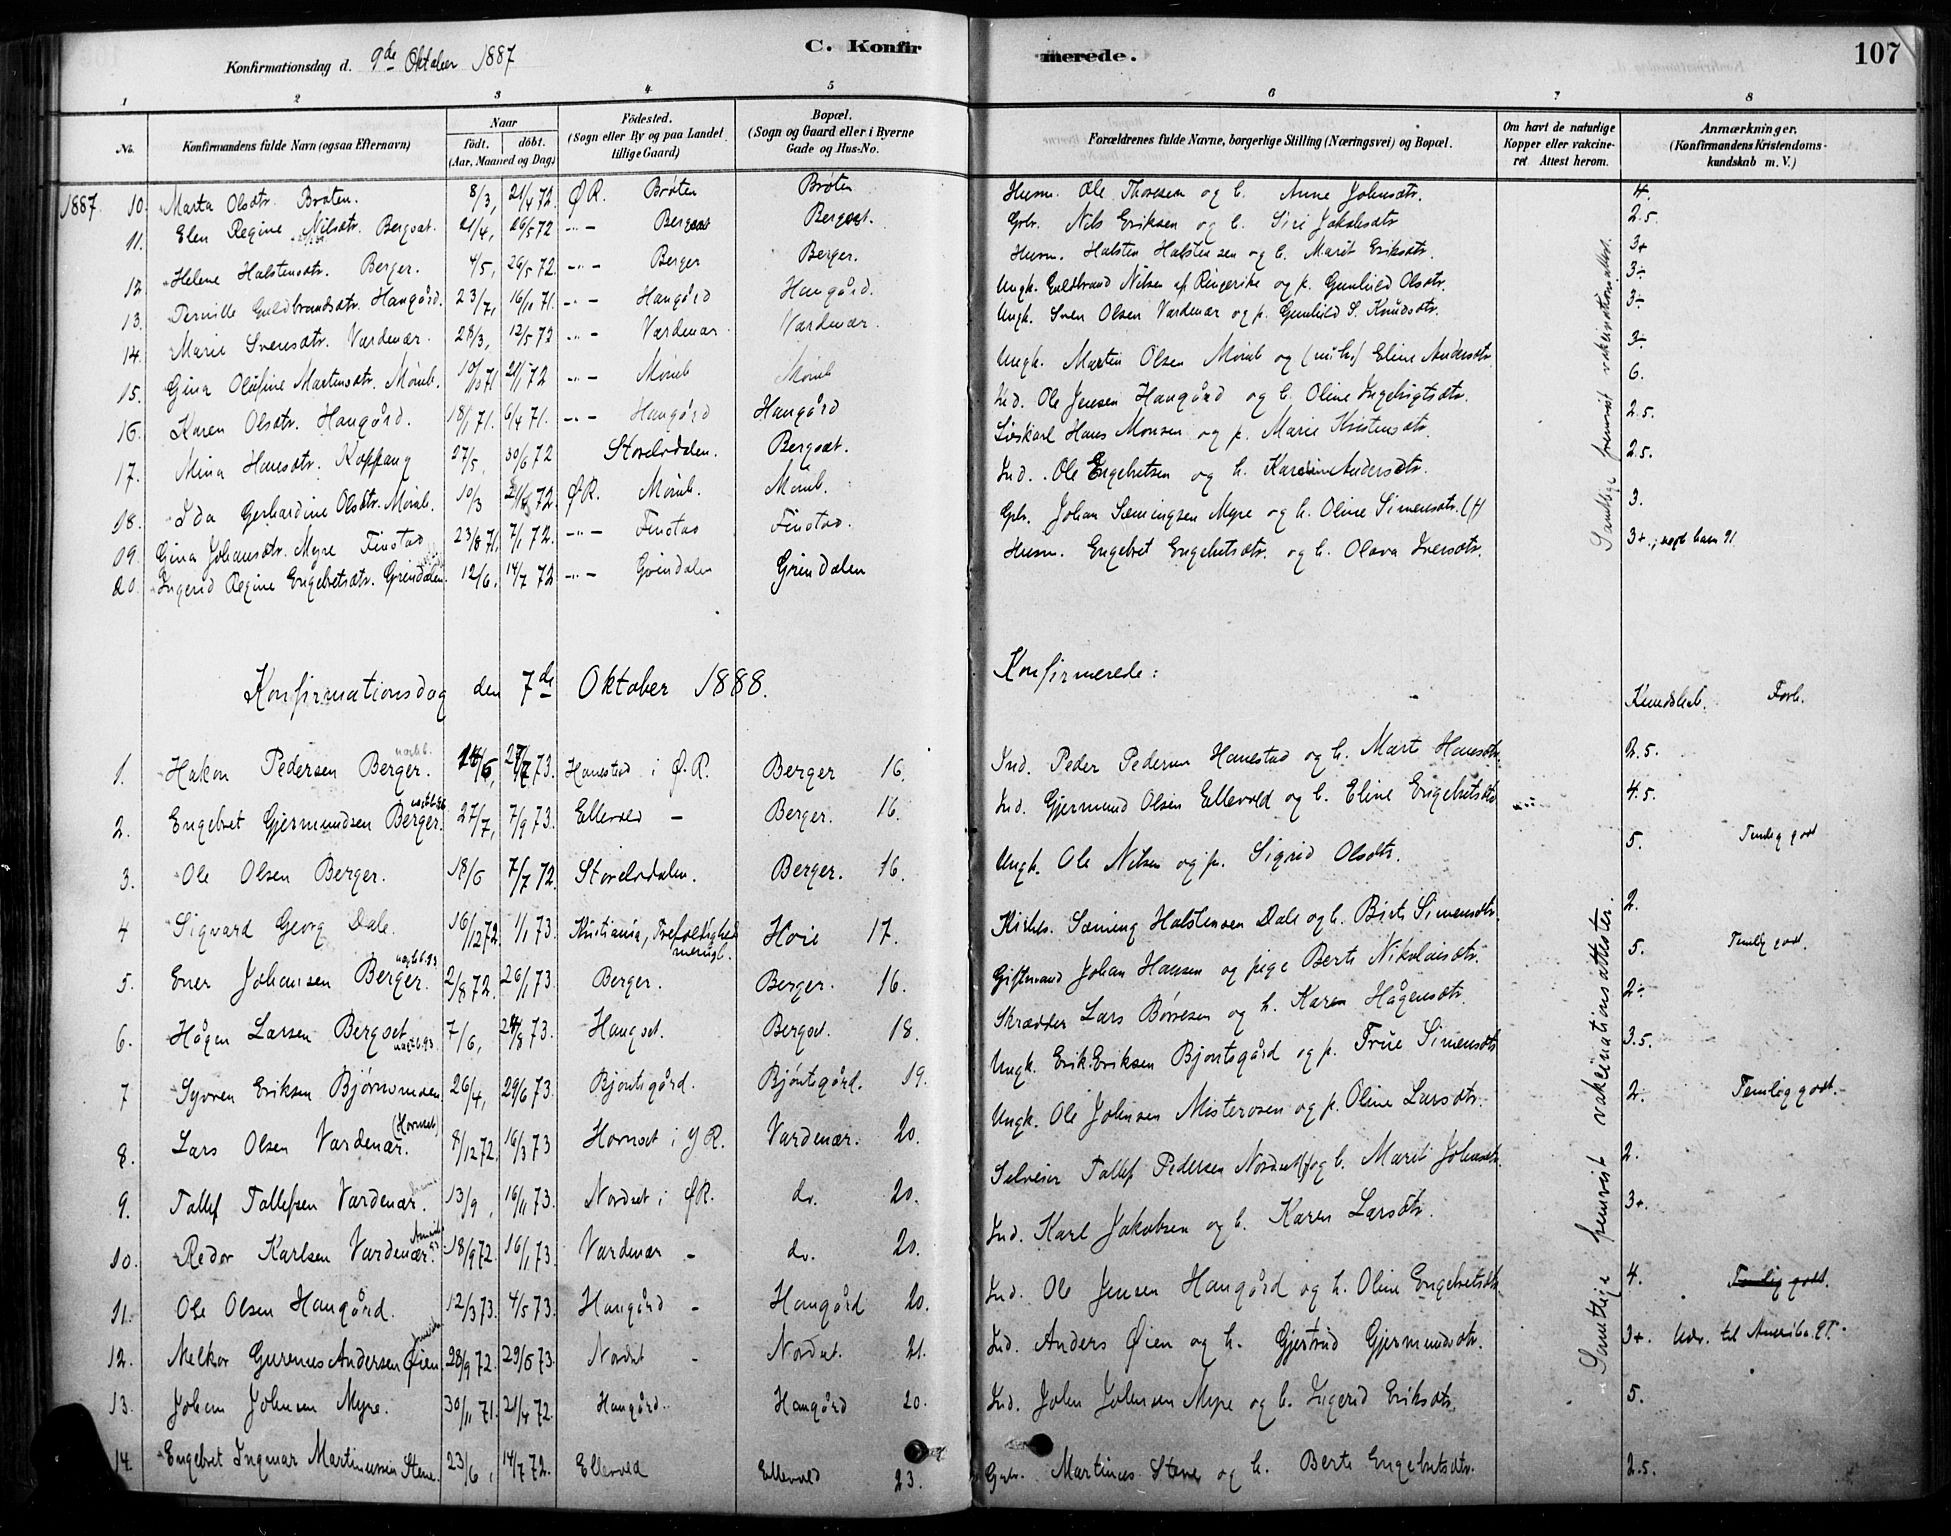 Konfirmationsdag d. 9de Oktober 1887
C. Konfirmerede.
107
1 2 3 4 5 6 7 8
No. Konfirmandens fulde Navn (ogsaa Efternavn) Naar födt. döbt. (Aar, Maaned og Dag) Födested. (Sogn eller By og paa Landet tillige Gaard) Bopæl. (Sogn og Gaard eller i Byerne Gade og Hus-No. Forældrenes fulde Navne, borgerlige Stilling (Næringsvei) og Bopæl. Om havt de naturlige Kopper eller vakcineret Attest herom. Anmærkninger. (Konfirmandens Kristendomskundskab m. V.)
1887. 10. Marta Olsdtr. Bråten. 8/3, 21/4 72. Ø R. Bråten Bråten Husm. Ole Thoresen og h. Anne Johnsdtr. 4.
11. Elen Regine Nilsdtr. Bergset. 21/4, 26/5 72 -"- Bergset Bergset. Gbr. Nils Eriksen og h. Siri Jakobsdtr 2.5.
12 Helene Halstensdtr. Berger. 4/5, 26/5 72. -"- Berger Berger. Husm. Halsten Halstensen og h. Marit Eriksdtr. 3+
13. Pernille Guldbrandsdtr. Hangård. 23/7, 16/10 71. -"- Hangård Hangård. Ungk. Guldbrand Nilsen af Ringerike og p. Gunhild Olsdtr. 3÷
14. Marie Svensdtr. Vardenær. 28/3, 12/5 72 -"- Vardenær Vardenær. Ungk. Sven Olsen Vardenær og p. Gunhild S. Knudsdtr. 3÷
15. Gina Olufine Martensdtr. Mömb. 10/10 71 21/1 72 -"- Mömb Mömb Ungk. Marten Olsen Mömb og Eline Andersdtr 3÷
16. Karen Olsdtr. Hangård. 18/1 71. 6/4 71. -"- Hangård Hangård Ind. Ole Jensen Hangård og h. Oline Ingebrigtsdtr. 6.
17. Mina Hansdtr. Koppang 27/5, 30/6 72 Storelvdalen. Bergset. Løskarl Hans Monsen og p. Marie Kristensdtr. 2.5.
18. Ida Gerhardine Olsdtr. Mömb. 10/3 72. Ø R. Mömb. Mömb. Ind. Ole Engebretsen og h. Karoline Andersdtr. 2.5.
19. Gina Johansdtr. Myre Finstad 23/8 71. 7/1 72. -"- Finstad Finstad. Gbr. Johan Sæmingsen Myre og h. Oline Simensdtr. (†) 3.
20. Ingerid Regine Engebretsdtr. Grindalen 12/6, 14/7 72 -"- Grindalen Grindalen Husm. Engebret Engebretsdtr. og h. Olava Iversdtr. 3+.
Samtlige fremvist vakcinationsattest.
Konfirmationsdag den 7de Oktober 1888. Konfirmerede:
Kundskab. Forh.
1. Hakon Pedersen Berger. 14/6, 27/7 73. Hanestad i Ø. R. Berger 16. Ind. Peder Pedersen Hanestad og h. Marit Hansdtr. 2.5.
2. Engebret Gjermundsen Berger. 27/7, 7/9 73. Ellevold - Berger. 16. Ind. Gjermund Olsen Ellevold og h. Eline Engebretsdtr 4.5.
3. Ole Olsen Berger. 18/6 7/7 72. Storelvdalen. Berger. 16. Ungk. Ole Nilsen og p. Sigrid Olsdtr. 5. Temlig godt
4 Sigvard Georg Dale. 16/12 72. 1/1 73. Kristiania, Trefoldighed menigh. Hoie 17. Kirkes. Sæming Halstensen Dale og h. Birit Simensdtr. 2.
5. Ener Johansen Berger. 2/8 72. 26/1 73. Berger. Berger. 16. Giftmand Johan Hansen og pige Berte Nikolaisdtr. 5. Temlig godt.
6. Hågen Larsen Bergset 7/6, 24/8 73. Hangset. Bergset. 18. Skrædder Lars Börresen og h. Karen Hågensdtr. 2÷
7 Syver Eriksen Björnsmoen 26/4, 29/6 73. Bjöntegård. Bjöntegård. 19. Ungk. Erik Eriksen Bjöntegård og p. Trine Simensdtr 3.5.
8. Lars Olsen Vardenær. (Hornset) 8/12 72. 16/3 73 Hornset i Y R. Vardenær. 20. Ungk. Ole Johnsen Misterosen og p. Oline Larsdtr. 2. Temlig godt.
9. Tallef Tallefsen Vardenær. 13/9, 16/11 73. Nordset i Ø R. do. 20. Selveier Tallef Pedersen Nordset (†) og h. Marit Johnsdtr. 2.
10. Redor Karlsen Vardenær. 18/9 72. 16/1 73. Vardenær - do. 20. Ind. Karl Jakobsen og h. Karen Larsdtr. 3+.
11. Ole Olsen Hangård. 12/3 73. 4/5 73. Hangård - Hangård 20. Ind. Ole Jensen Hangård og h. Oline Engebretsdtr. 4. Temlig godt.
12. Melkor Gurenius Andersen Øien 28/9 72. 29/6 73. Nordset - Nordset. 21. Ind. Anders Øien og h. Gjertrud Gjermundsdtr. 3+. Udv. til Amerika 91.
13. Johan Johnsen Myre. 30/11 71. 21/4 72. Hangård. Hangård 20. Ind. John Johnsen Myre og h. Ingerid Eriksdtr. 5.
14. Engebret Ingmar Martinussen Stene. 23/6, 14/7 72. Ellevold Ellevold 23. Gbr. Martinus Stene og h. Berte Engebretsdtr. 2.5.
Samtlige fremvist vakcinationsattester.